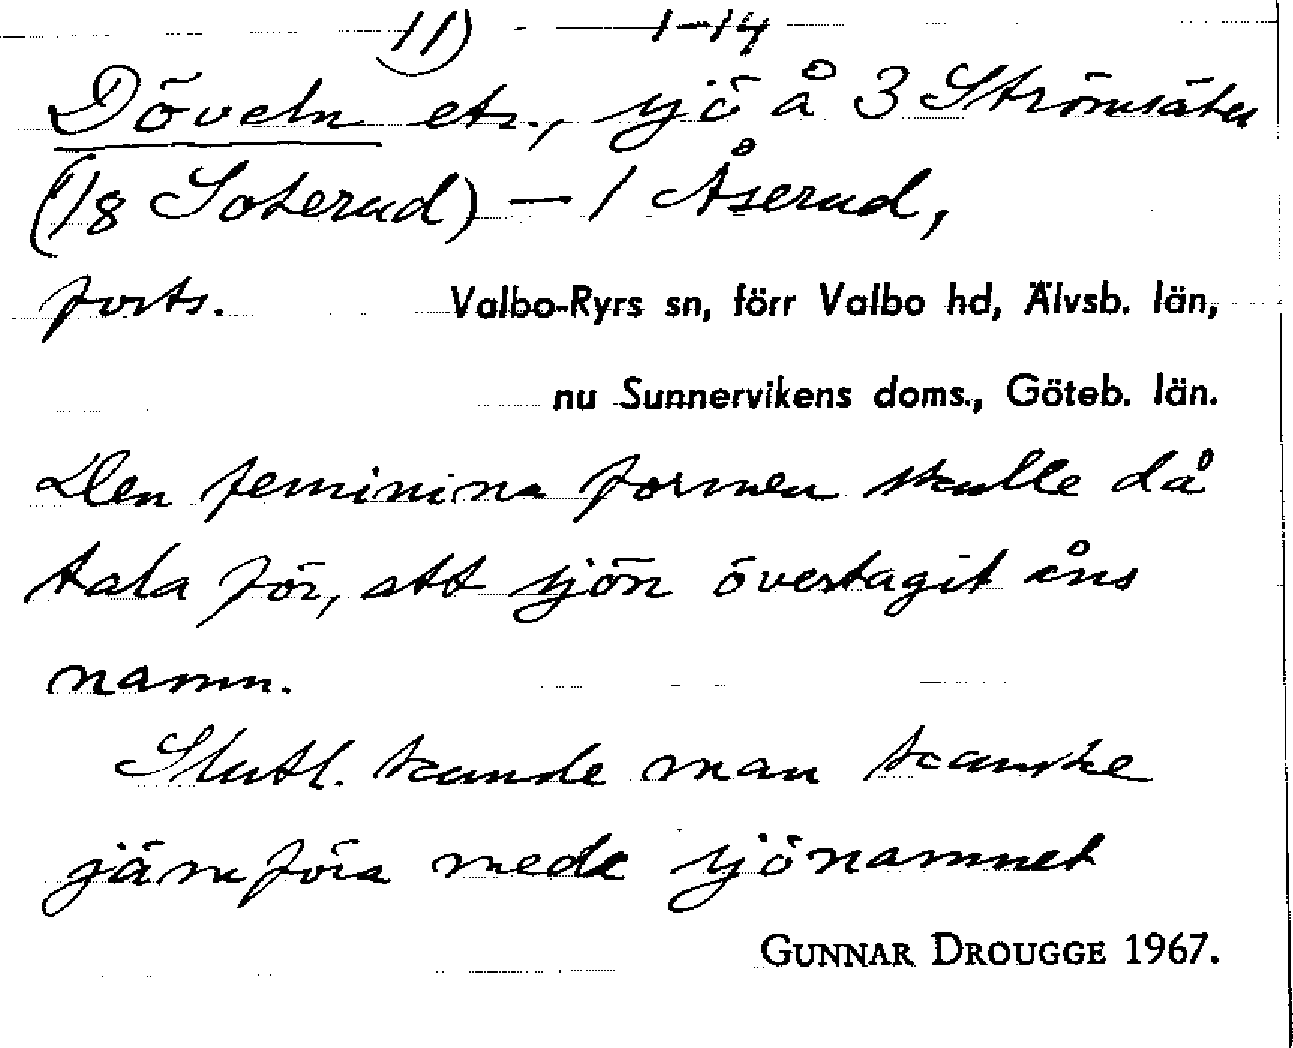 11) 1-14
Döveln etc., sjö å 3 Strömsäter
(1/8 Soterud) – 1 Åserud,
forts. Valbo-Ryrs sn, förr Valbo hd, Älvsb. län,
nu Sunnervikens doms., Göteb. län.
Den feminina formen skulle då
tala för, att sjön övertagit åns
namn.
Slutl. kunde man kanske
jämföra meda sjönamnet
GUNNAR DROUGGE 1967.